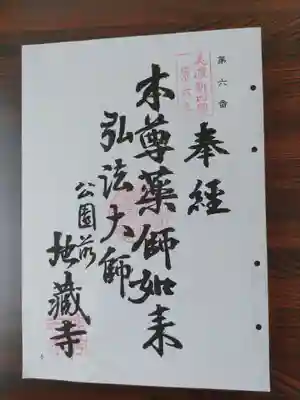 第六番
奉経
本尊薬師如来
弘法大師
公園前
地蔵寺